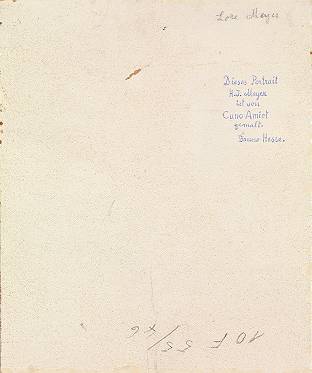 Lore Meyer
Dieses Portrait
H.J. Meyer
ist von
Cuno Amiet
gemalt.
Bruno Hesse.
10 F 55/46